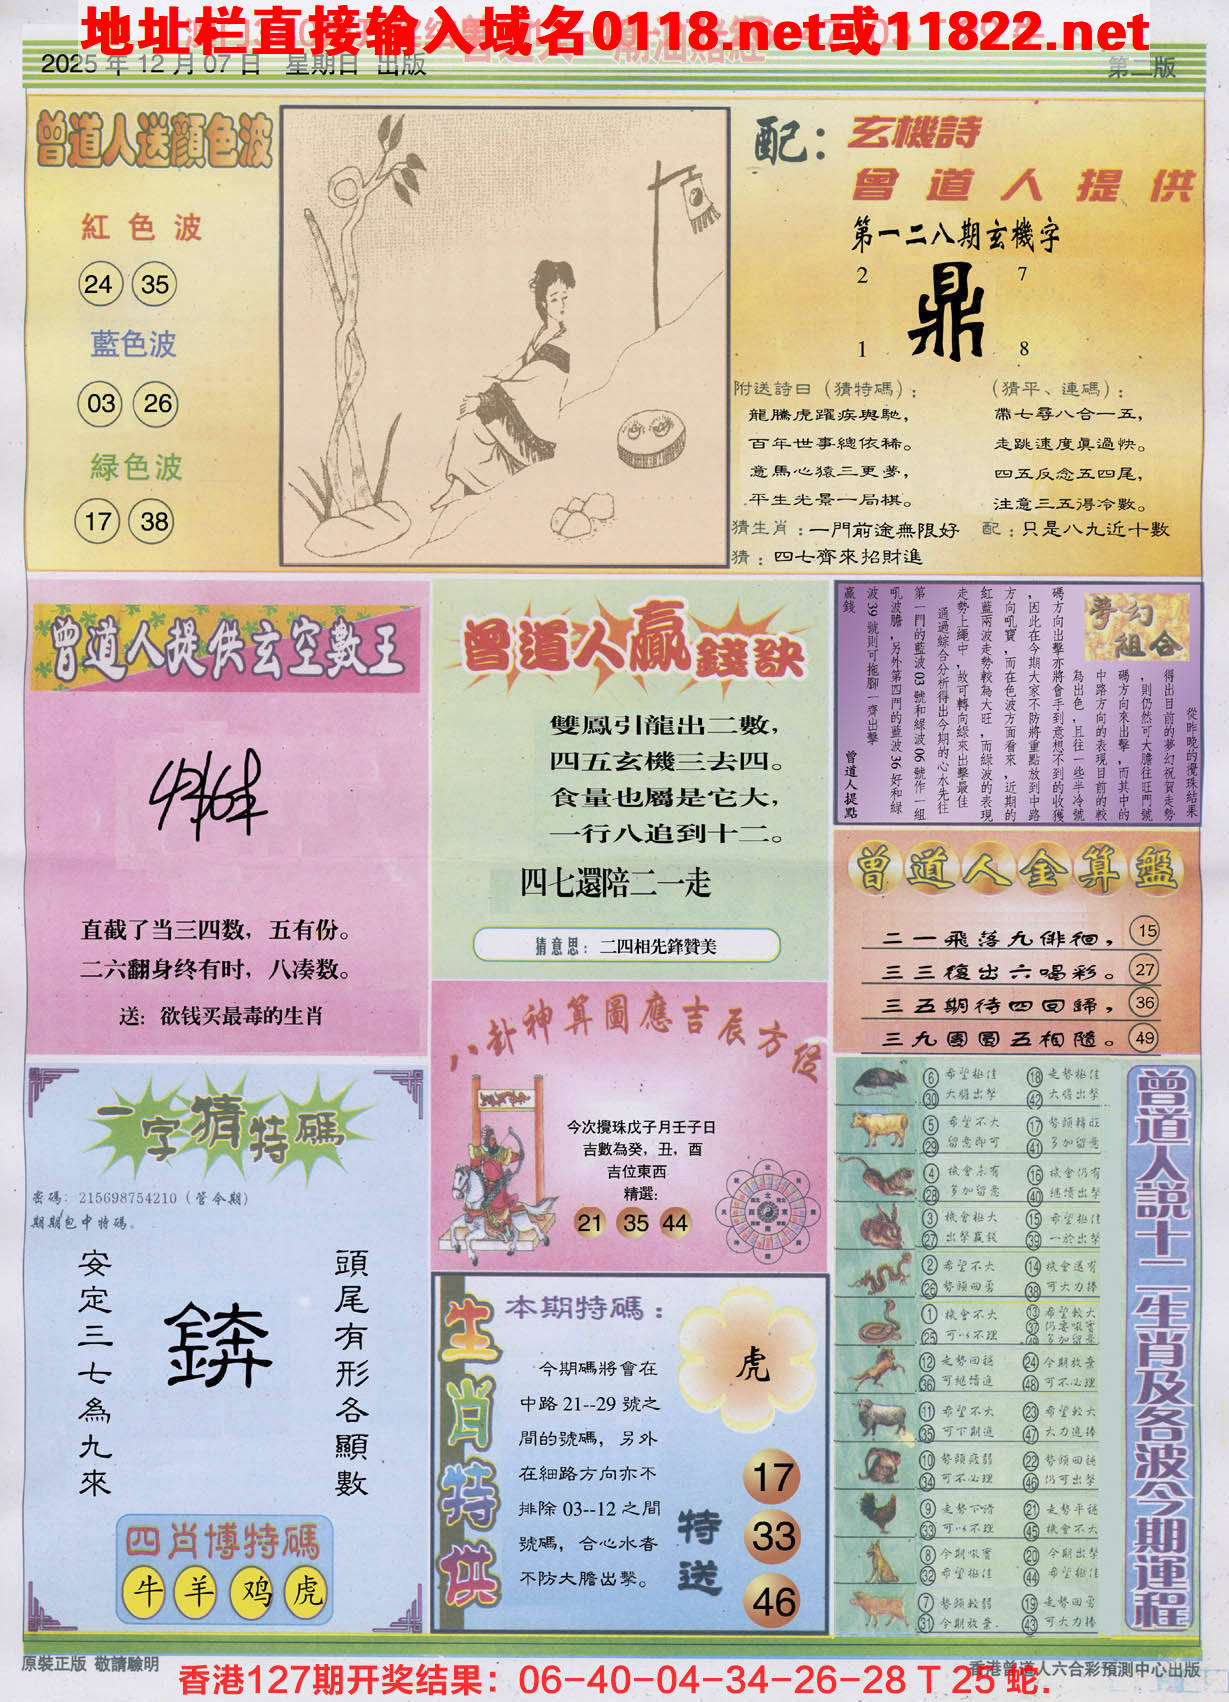 地址栏直接输入域名0118.net或11822.net
2025年12月07日 星期日 出版
第二版
曾道人送顏色波
紅色波
24 35
藍色波
03 26
緑色波
17 38
配：玄機詩
曾道人提供
第一二八期玄機字
2 7
鼎
1 8
附送詩曰（猜特碼）：
龍騰虎躍疾與馳，
百年世事總依稀。
意馬心猿三更夢，
平生光景一局棋。
（猜平、連碼）：
帶七尋八合一五，
走跳速度真過快。
四五反念五四尾，
注意三五得冷數。
猜生肖：一門前途無限好
配：只是八九近十數
猜：四七齊來招財進
曾道人提供玄空數王
直截了当三四数，五有份。
二六翻身终有时，八凑数。
送：欲钱买最毒的生肖
曾道人贏錢訣
雙鳳引龍出二數，
四五玄機三去四。
食量也屬是它大，
一行八追到十二。
四七還陪二一走
猜意思：二四相先鋒贊美
夢幻組合
從昨晚的攪珠結果
得出目前的夢幻祝賀走勢
，則仍然可大膽往旺門號
碼方向來出擊，而其中的
中路方向的表現目前的較
為出色，且往一些半冷號
碼方向出擊亦將會手到意想不到的收獲
，因此在今期大家不防將重點放到中路
方向吼寶，而在色波方面看來，近期的
紅藍兩波走勢較為大旺，而綠波的表現
走勢上繩中，故可轉向綠來出擊最佳
通過綜合分析得出今期的心水先往
第一門的藍波03號和綠波06號作一組
吼波膽，另外第四門的藍波36好和綠
波39號則可拖腳一齊出擊
贏錢
曾道人提點
曾道人金算盤
二一飛落九俳徊，15
三三復出六喝彩。27
三五期待四回歸，36
三九團圓五相隨。49
八卦神算圖應吉辰方位
今次攪珠戊子月壬子日
吉數為癸，丑，酉
吉位東西
精選：
21 35 44
一字猜特碼
密碼：215698754210（管令期）
期期包中特碼。
頭尾有形各顯數
安定三七為九來
四肖博特碼
牛 羊 鸡 虎
生肖特供
本期特碼：
虎
今期碼將會在
中路21--29號之
間的號碼，另外
在細路方向亦不
排除03--12之間
號碼，合心水者
不防大膽出擊。
特送
17
33
46
曾道人說十二生肖及各波今期運程
6 希望極佳 18 走勢極佳
30 大膽出擊 42 大膽出擊
5 希望不大 17 勢頭轉旺
29 留意即可 41 多加留意
4 機會未有 16 機會仍有
28 多加留意 40 繼續出擊
3 機會極大 15 希望極佳
27 出擊贏錢 39 一於出擊
2 希望不大 14 機會還有
26 勢頭回勇 38 可大力捧
1 機會不大 13 希望較大
25 可以不理 37 仍要吼實
49 多加留意
12 走勢回穩 24 今期放棄
36 可繼續追 48 可不必理
11 希望不大 23 希望較大
35 可下期追 47 大力追捧
10 勢頭疲弱 22 勢頭回穩
34 可不必理 46 仍可出擊
9 走勢下滑 21 走勢平穩
33 可以不理 45 機會不大
8 今期吼實 20 今期出擊
32 希望極佳 44 希望極佳
7 勢頭較弱 19 走勢回勇
31 今期放棄. 43 可大力捧
原裝正版 敬請驗明
香港127期开奖结果：06-40-04-34-26-28 T 25 蛇.
香港曾道人六合彩預測中心出版